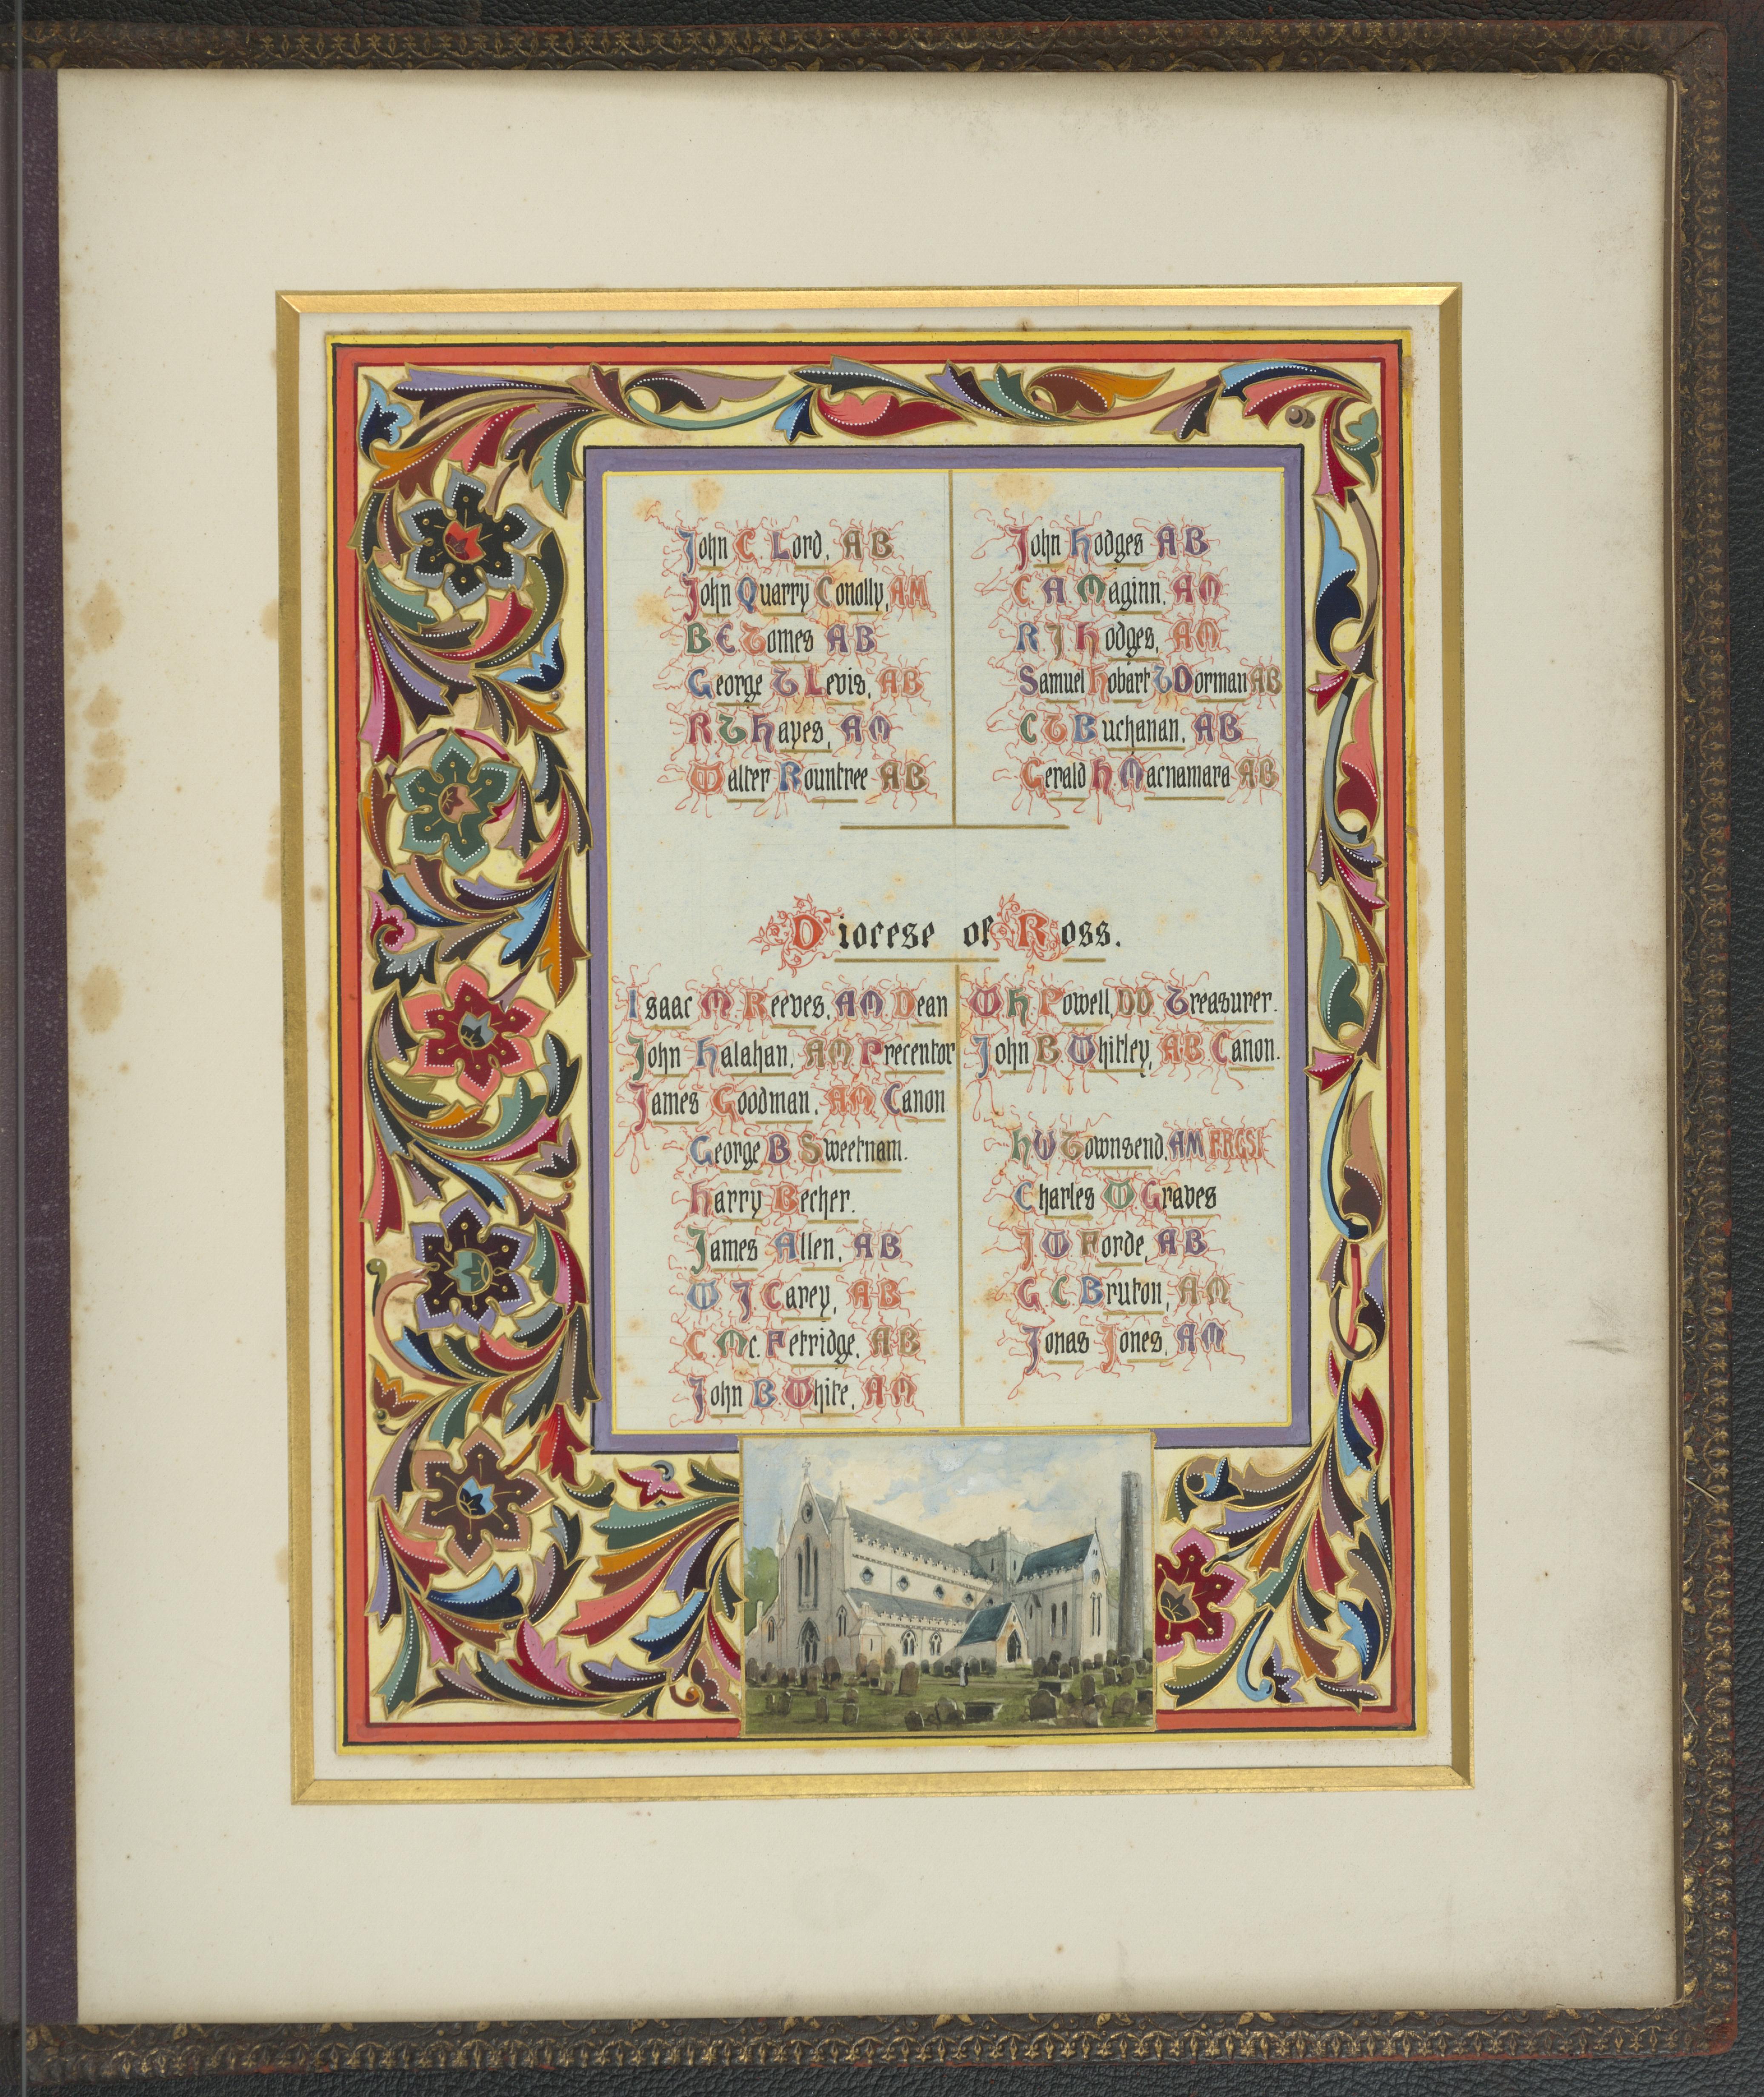 John C. Lord, AB
John Quarry Conolly, AM
B E Tomes AB
George T Levis, AB
R T Hayes, AM
Walter Rountree AB
John Hodges AB
C. A. Maginn, AM
R J Hodges, AM
Samuel Hobart Dorman AB
C T Buchanan, AB
Gerald H. Macnamara AB
Diocese of Ross.
Isaac M. Reeves, AM Dean
John Halahan, AM. Precentor
James Goodman, AM Canon
George B. Sweetnam.
Harry Becher.
James Allen, AB
W J Carey, AB
C. Mc. Fetridge, AB
John B. White, AM
W H. Powell, DD Treasurer.
John B Whitley, AB Canon.
H W Townsend, AM FRGSI
Charles W. Graves
J W Forde, AB
G. C. Bruton, AM
Jonas Jones, AM